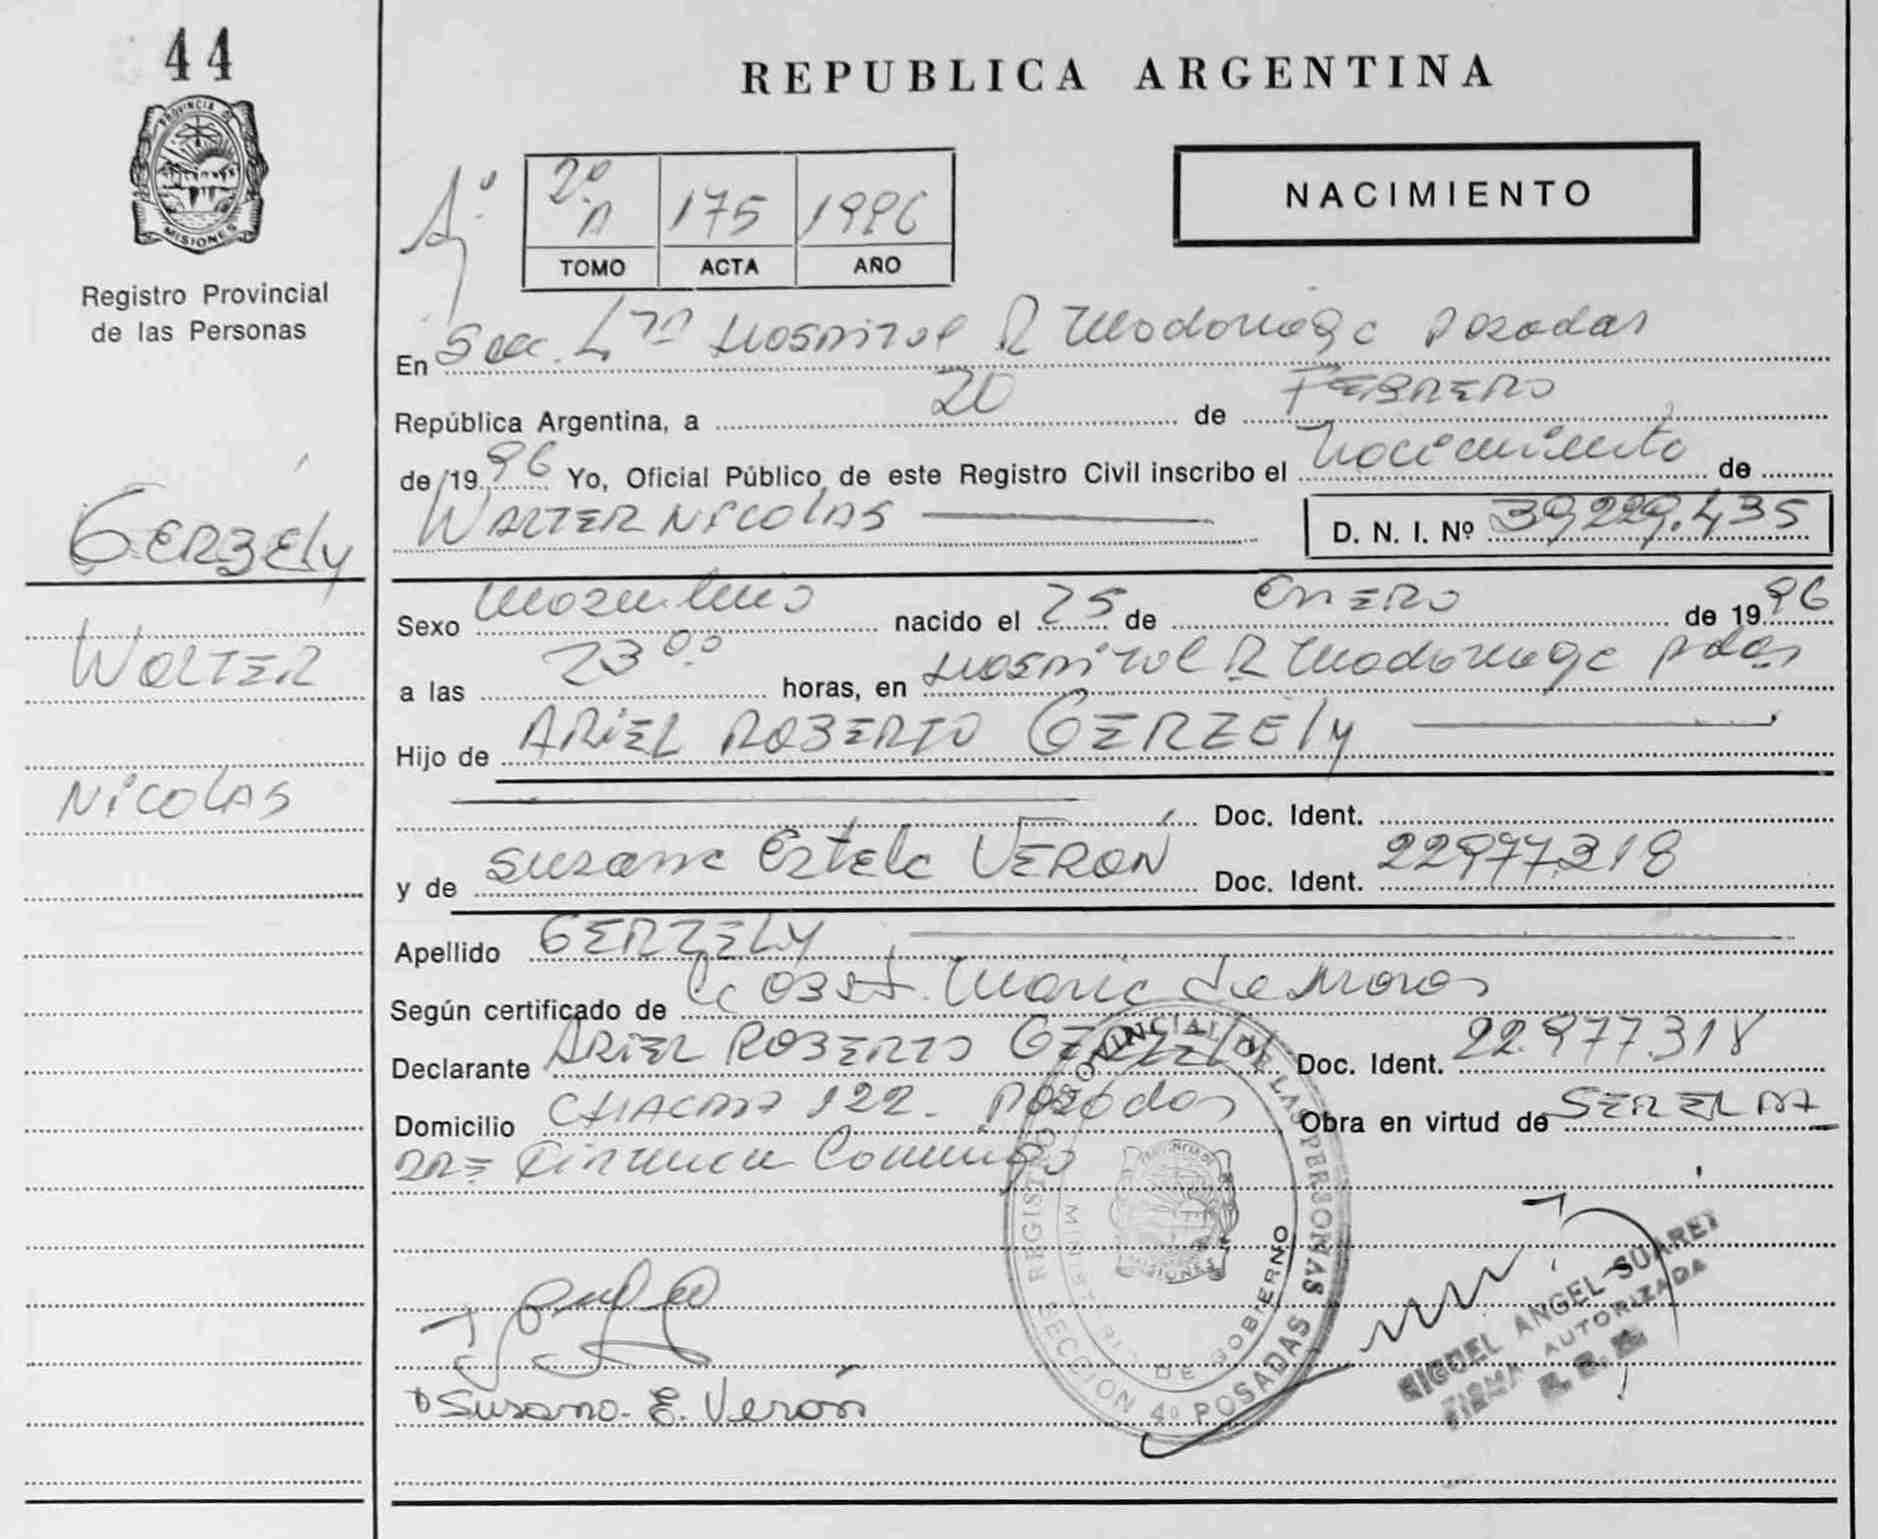 44
PROVINCIA DE
MISIONES
Registro Provincial
de las Personas
Gerzély
Walter
Nicolas
REPUBLICA ARGENTINA
NACIMIENTO
2º A 175 1996
TOMO ACTA AÑO
En Sec. 4ta Hospital R Madariaga Posadas
República Argentina, a 20 de FEBRERO
de 1996 Yo, Oficial Público de este Registro Civil inscribo el nacimiento de
WALTER NICOLAS D. N. I. Nº 39.229.435
Sexo masculino nacido el 25 de ENERO de 1996
a las 23 00 horas, en Hospital R Madariaga Pdas
Hijo de ARIEL ROBERTO GERZÉLY
Doc. Ident.
y de Susana Estela VERÓN Doc. Ident. 22977.318
Apellido GERZELY
Según certificado de la Obst. Maria de
Declarante ARIEL ROBERTO GERZELY Doc. Ident. 22.977.318
Domicilio CHACRA 122. Posadas Obra en virtud de SER EL PA
DRE
Susana E. Verón
REGISTRO PROVINCIAL DE LAS PERSONAS
MINISTERIO DE GOBIERNO
MISIONES
SECCION 4º POSADAS
MIGUEL ANGEL SUAREZ
FIRMA AUTORIZADA